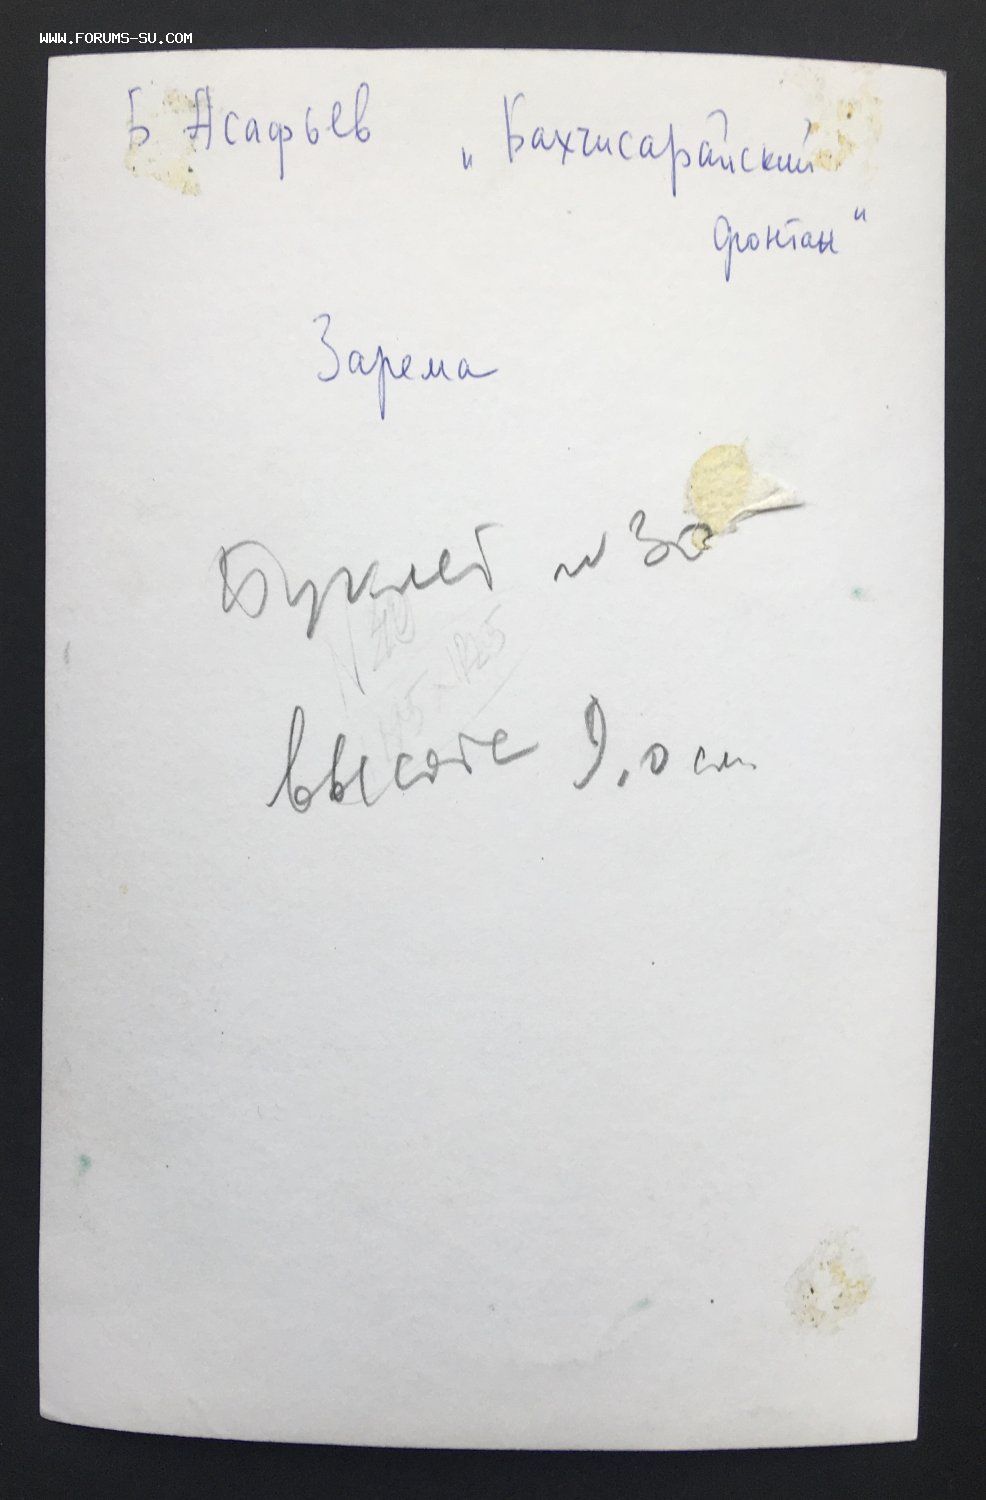 WWW.FORUMS-SU.COM
Б Асафьев „Бахчисарайский
фонтан"
Зарема
Буклет № 30
Высота 9,0 см